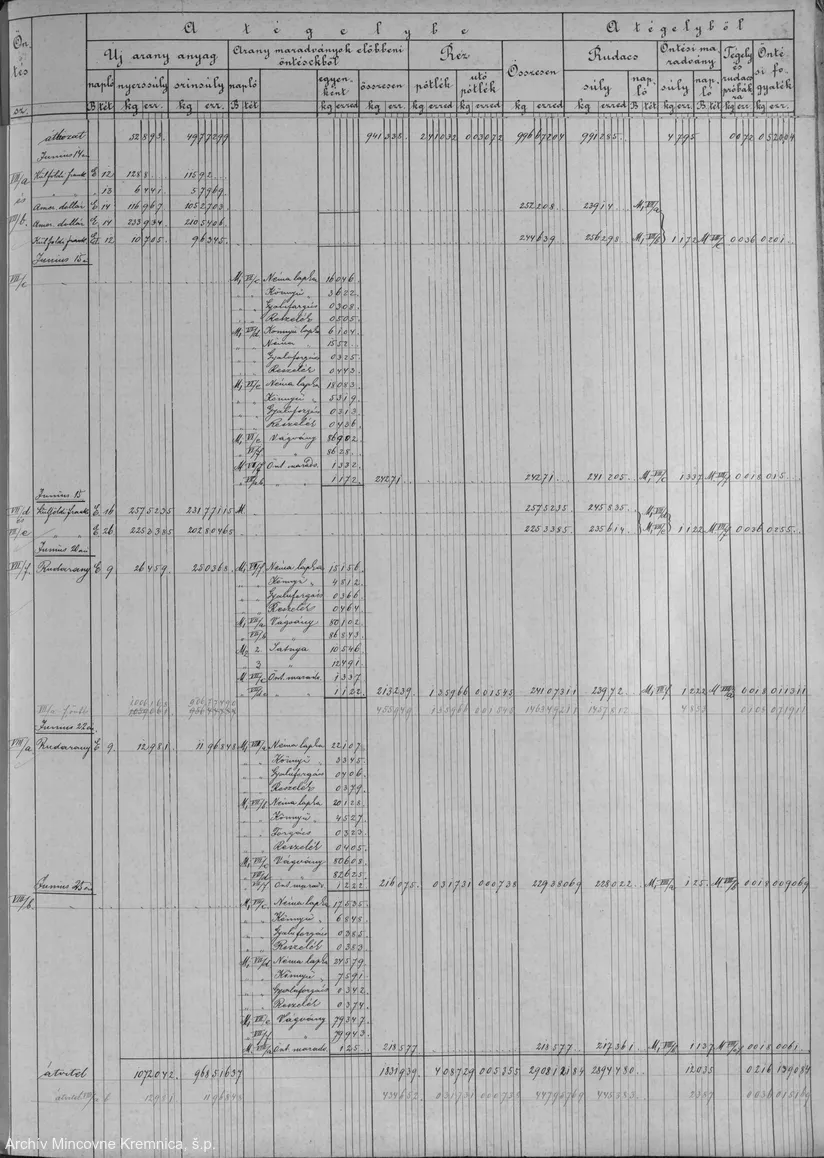 A tégelybe A tégelyből
Ön-tés sz. Uj arany anyag Arany maradványok előbbeni öntésekből Réz Összesen Rudacs Öntési maradvány Tégely és rudacs próbákra Öntési fogyaték
napló nyerssúly színsúly napló egyenként összesen pótlék utó pótlék súly napló súly napló
B. tét kg err. kg err. B tét kg erred kg err. kg erred kg erred kg erred kg err. B tét kg err. B tét kg erred kg err.
áthozat 52893. 4977299 941335. 241032 003072 99667204 991285. 4795 0072 052009
Junius 14én
VII/a Külföldi frank E 12 1288. 11592.
és " " " 13 6441 57969
Amer. dollár E 14 116967 1052703 252208 23914 M, VII/a
VII/b. Amer. dollár E 14 233934 2105406
Külföldi frank E 12 10705. 96345 244639 256298 M, VII/b 1172 M VII/c 0036 0201
Junius 15én
VII/c M, VI/c Néma lapka 16046
" " Könnyű " 3622
" " Gyaluforgács 0308
" " Reszelék 0505
M, VI/d Könnyű lapka 6104
" " Néma " 1552
" " Gyaluforgács 0325
" " Reszelék 0443
M, VI/e Néma lapka 18083
" " Könnyű " 5319
" " Gyaluforgács 0313
" " Reszelék 0436
M, VI/e Vágvány 86902
" VI/f " 8628
M VI/f Önt. marado. 1332
" VII/ab " 1172 24271 24271 241205 M, VII/c 1337 M VII/f 0018 015
Junius 15
VII/d Külföldi frank E 16 2575235 23177115 M 2575235 245835 M, VII/d
és
VII/e " " E 26 2253385 20280465 2253385 235614 M, VII/e 1122 M VII/f 0036 0255
Junius 20án
VII/f Rudarany E 9 26459 250368 M, VI/f Néma lapka 15156
" " Könnyű " 4812
" " Gyaluforgács 0366
" " Reszelék 0464
M, VII/a Vágvány 80102
" VII/b " 86843
M2 2 Satnya 10546
" 3 " 12491
M VII/c Önt. marado. 1337
" VII/de " 1122 213239 135966 001545 24107311 23972 M, VII/f 1222 M VIII/a 0018 011311
455949 135966 001545 146349211 1457812 4853 0108 071911
Junius 22én
VIII/a Rudarany E 9 12981 1196848 M, VII/a Néma lapka 22107
" " Könnyű " 3345
" " Gyaluforgács 0406
" " Reszelék 0379
M, VII/b Néma lapka 20128
" " Könnyű " 4527
" " Forgács 0323
" " Reszelék 0405
M, VII/c Vágvány 80608
" VII/d " 82625
" VII/f Önt. marado. 1222 216075. 031731 000738 22938069 228022 M, VIII/a 125 M VIII/b 0018 009069
Junius 25én
VIII/b. M, VII/c Néma lapka 17535
" " Könnyű " 6848
" " Gyaluforgács 0385
" " Reszelék 0353
M, VII/d Néma lapka 24579
" " Könnyű " 7591
" " Gyaluforgács 0342
" " Reszelék 0374
M, VII/e Vágvány 79347
" VII/f " 79943
M VIII/a Önt. marado. 125 218577 218577 217361 M, VIII/b 1137 0018 0061
átvitel 1072042. 96851637 1831939. 408729 005355 290812184 2894480. 12035 0216 139084
12981 1196848 434652 031731 000738 44795769 445383 2387 0036 015169
Archív Mincovne Kremnica, š.p.